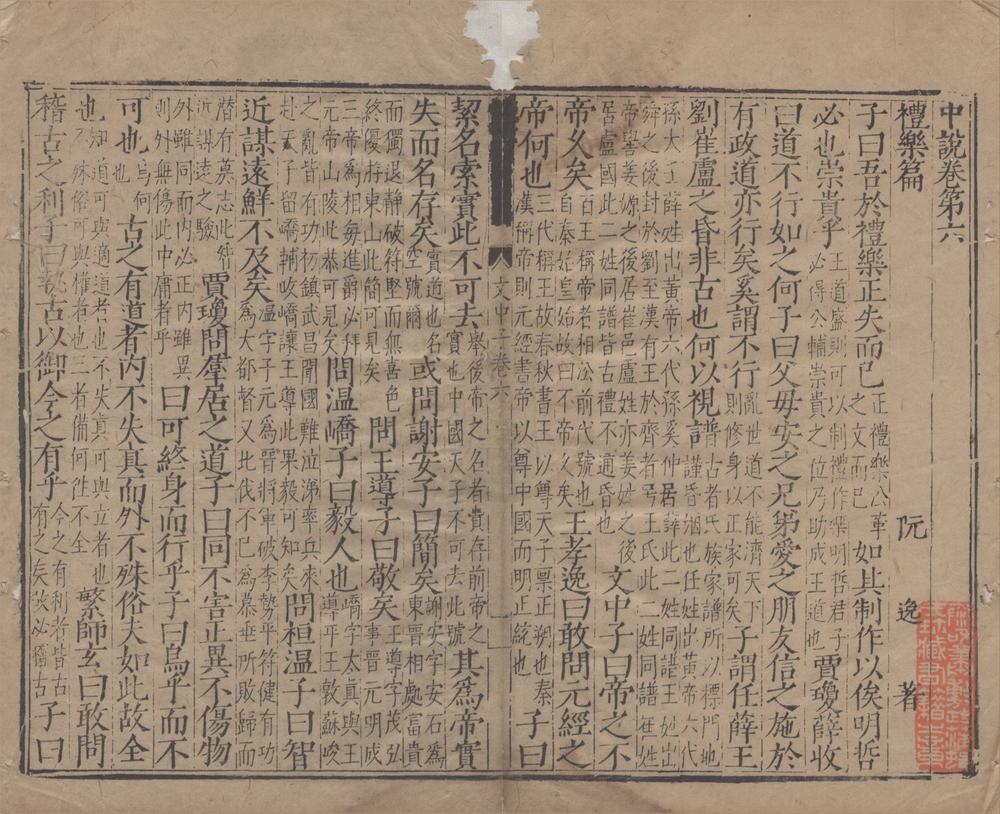 中說卷第六
禮樂篇 阮逸 著
子曰吾於禮樂正失而已正禮樂公革之文而已如其制作以俟明哲
必也崇貴乎王道盛則可以制禮作樂明哲君子必得公輔崇貴之位乃助成王道也賈瓊薛收
曰道不行如之何子曰父母安之兄弟愛之朋友信之施於
有政道亦行矣奚謂不行亂世道不能濟天下則修身以正家可矣子謂任薛王
劉崔盧之昏非古也何以視譜古者氏族家譜所以標門地謹昏姻也任姓出黃帝六代
孫大壬薛姓出黃帝六代孫奚仲居薛此二姓同譜王姓出舜之後封於劉至漢有王於齊者号王氏此二姓同譜崔姓
帝嚳姜嫄之後居崔邑盧姓亦姜姓之後居盧國此二姓同譜皆古禮不通昏也文中子曰帝之不
帝久矣自秦始皇始故曰不帝久矣王孝逸曰敢問元經之
帝何也三代稱王故春秋書王以尊天子稟正朔也秦漢稱帝則元經書帝以尊中國而明正統也子曰
文中子卷六
絜名索實此不可去舉後帝之名者貴存前帝之實也中國天子不可去此號其爲帝實
失而名存矣實道也名空號爾或問謝安子曰簡矣謝安字安石爲東晉相處富貴
而獨退靜破符堅而無喜色終優游東山此簡可見矣問王導子曰敬矣王導字茂弘事晉元明成
三帝爲相每進爵必拜元帝山陵此恭可見矣問温嶠子曰毅人也嶠字太真與王導平王敦蘇峻
之亂皆有功初鎮武昌聞國難泣涕率兵來赴天子留嶠輔政嶠讓王導此果毅可知矣問桓温子曰智
近謀遠鮮不及矣温字子元爲晉將軍破李勢平符健有功爲大都督又北伐不已爲慕垂所敗歸而
潛有奠志此智近謀遠之驗賈瓊問羣居之道子曰同不害正異不傷物
外雖同而内必正内雖異則外無傷此中庸者乎曰可終身而行乎子曰烏乎而不
可也烏何也古之有道者内不失真而外不殊俗夫如此故全
也知道可與適道者也不失真可與立者也不殊俗可與權者也三者備何徃不全繁師玄曰敢問
稽古之利子曰執古以御今之有乎今之有利者皆古有之矣故必稽古子曰